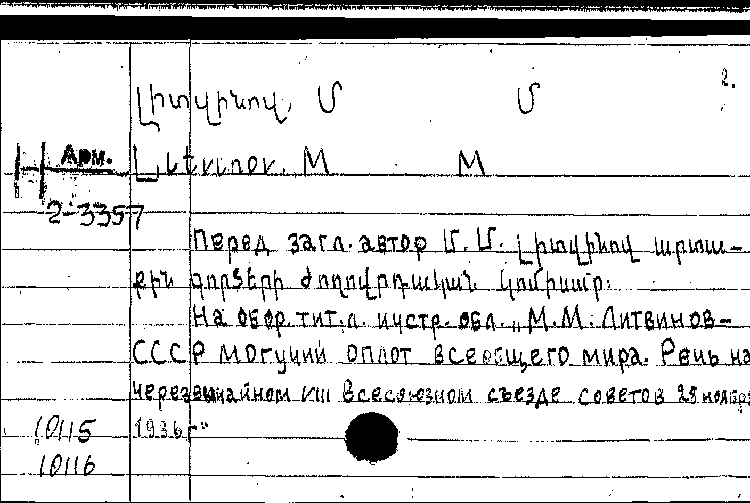 2.
Լիտվինով, Մ Մ
Арм. Litvinov. M M
2-3357
Перед загл. автор Մ. Մ. Լիտվինով արտա-
քին գործերի ժողովրդական կոմիսար.
На обор. тит. л. иустр. обл. „М.М. Литвинов-
СССР могучий оплот всеобщего мира. Речь на
черезвычайном VIII всесоюзном съезде советов 25 ноября
10115 1936г"
10116